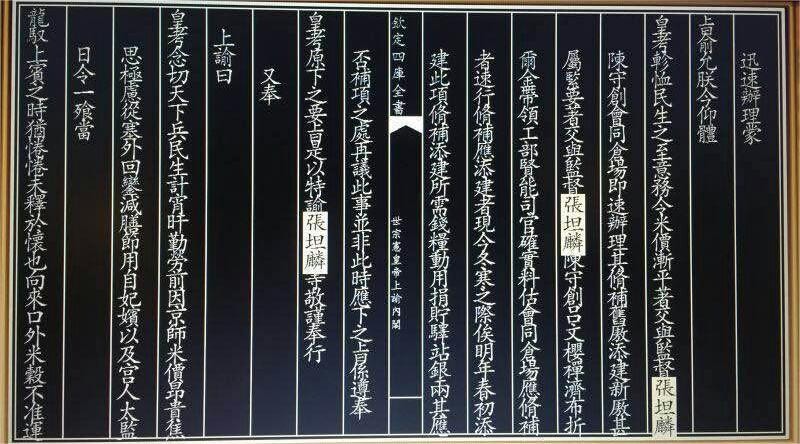 迅速辦理蒙
上旨俞允朕今仰體
皇考軫恤民生之至意務令米價漸平著交與監督張坦麟
陳守創會同倉場即速辦理其脩補舊廒添建新廒甚
屬緊要著交與監督張坦麟陳守創呂文櫻禪濟布折
爾金帶領工部賢能司官確實料估會同倉場應脩補
者速行脩補應添建者現今冬寒之際俟明年春初添
建此項脩補添建所需錢糧動用捐貯驛站銀兩其應
欽定四庫全書
世宗憲皇帝上諭內閣
否補項之處再議此事並非此時應下之旨係遵奉
皇考原下之要旨是以特諭張坦麟等敬謹奉行
又奉
上諭曰
皇考念切天下兵民生計宵旰勤勞前因京師米價昂貴焦
思極慮從塞外回鑾減膳節用自妃嬪以及宮人太監
日令一飱當
龍馭上賓之時猶惓惓未釋於懷也向來口外米穀不准運